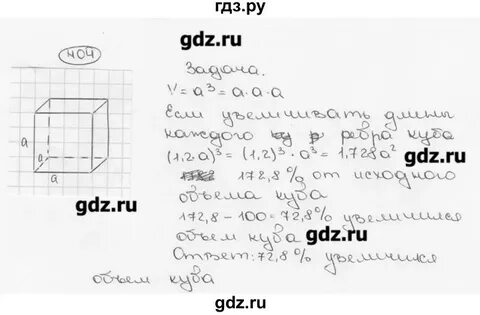 гдз.ру
404
gdz.ru
Задача.
V = a³ = a·a·a
Если увеличивать длины
каждого ребра куба
(1,2a)³ = (1,2)³ · a³ = 1,728a²
172,8% от исходного
объема куба
172,8 - 100 = 72,8% увеличился
объем куба
Ответ: 72,8% увеличился
объем куба
a
a
a
gdz.ru
gdz.ru
gdz.ru
gdz.ru
gdz.ru